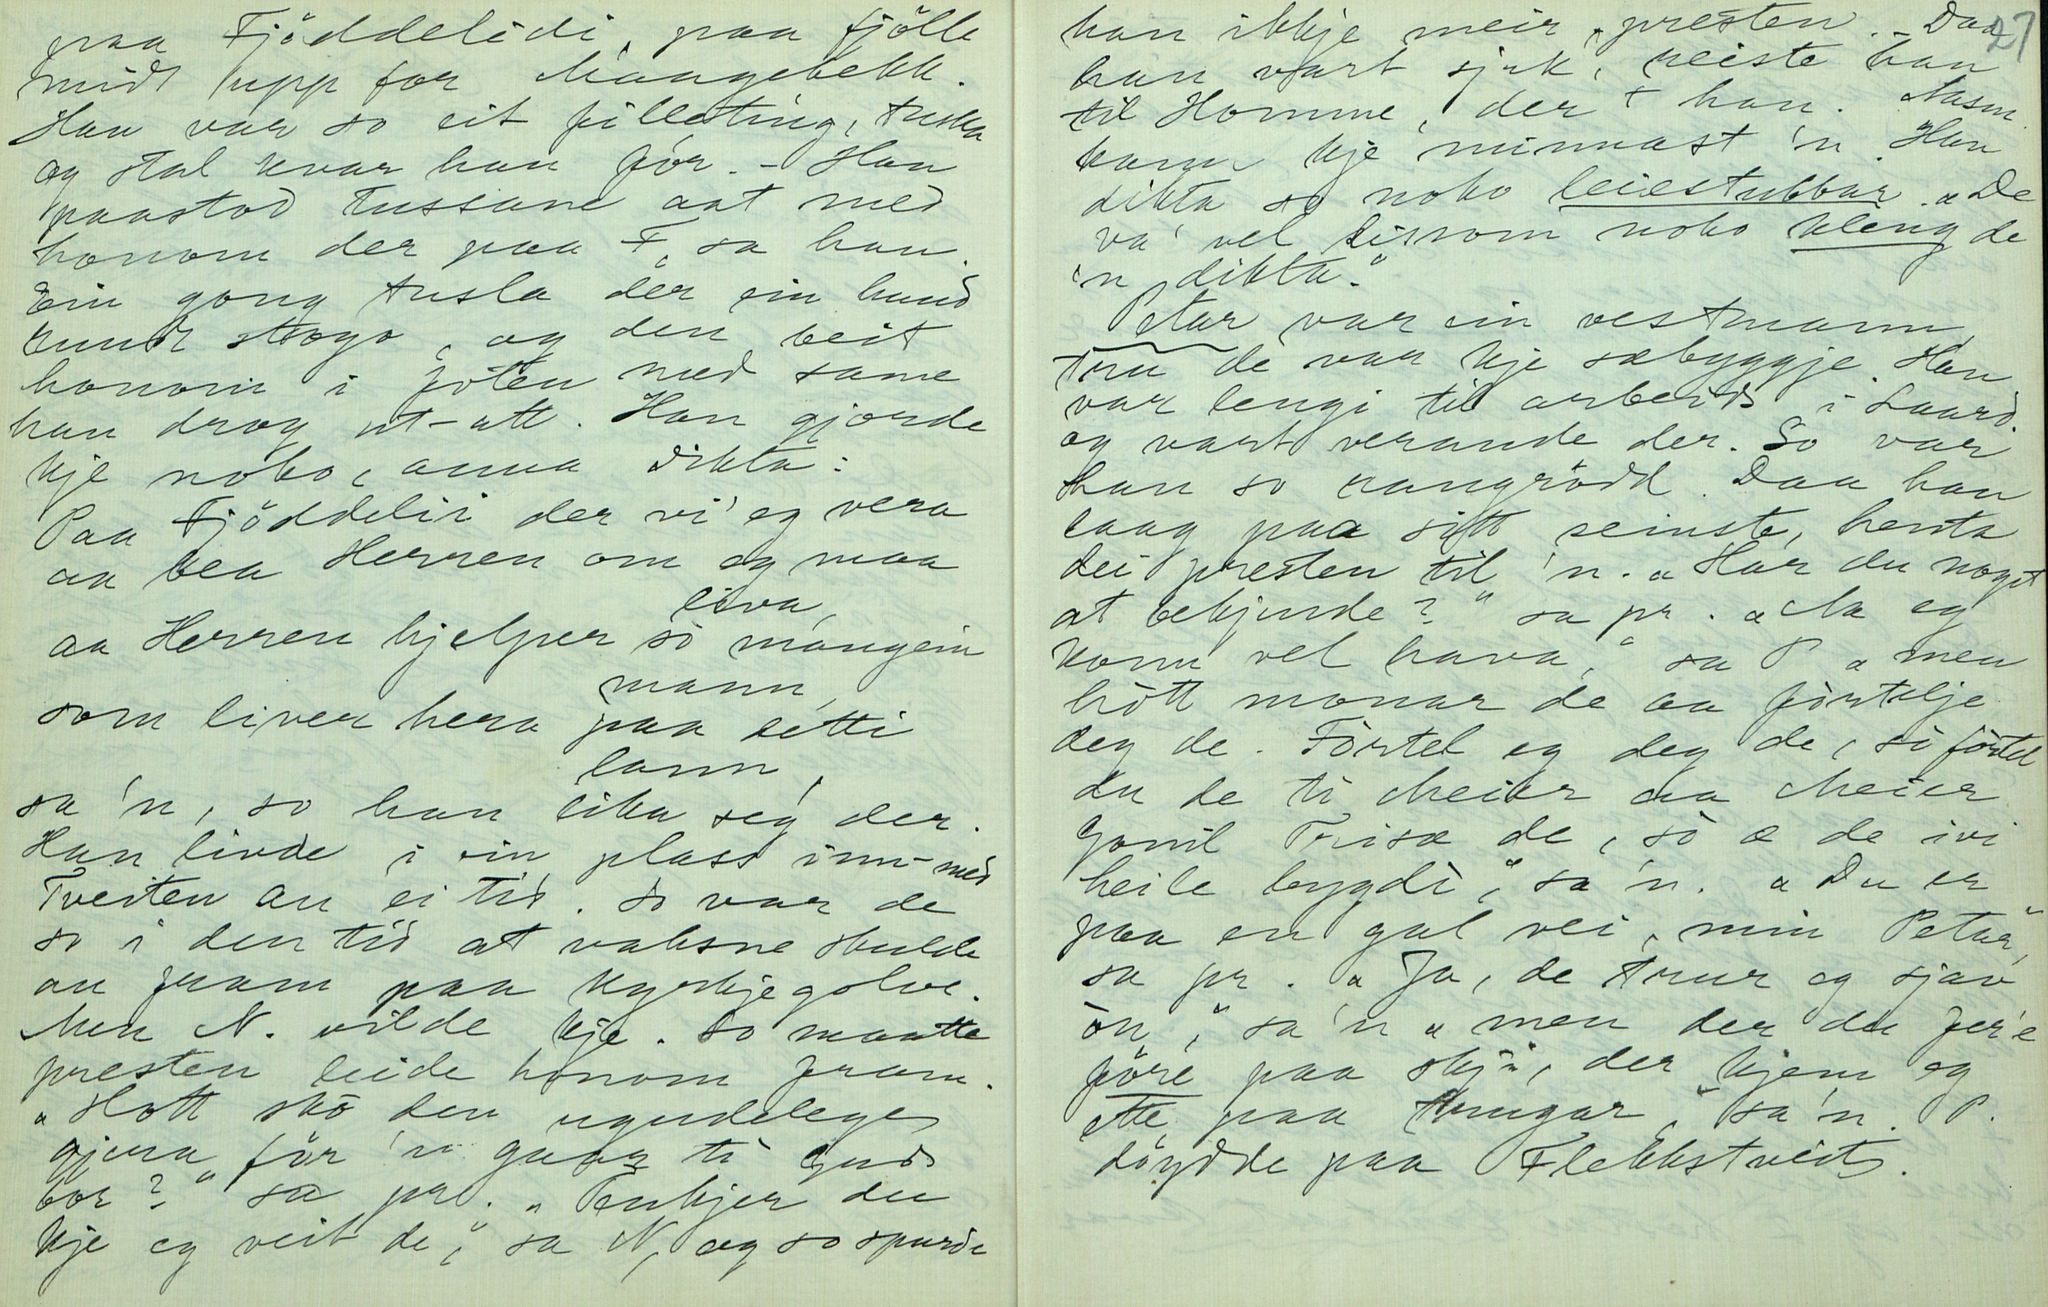 paa Fjöddelidi, paa fjölle
midt upp for Maangebekk.
Han var so eit filleting, tuska
og stal kvar han fór. – Han
paastod tussane aat med
honom der paa F, sa han.
Ein gong tusla der ein hund
rundt stogo, og den beit
honom i foten med same
han drog ut-att. Han gjorde
kje noko, anna dikta:
Paa Fjöddelii der vi' eg vera
aa bea Herren om eg maa
liva,
aa Herren hjelper so mangein
mann,
som liver hera paa détti
lann,
sa 'n, so han lika seg der.
Han livde i ein plass inn-med
Tveiten au ei tid. So var de
so i den tid at vaksne skulde
au fram paa kyrkjegolve.
Men N. vilde kje. So maatte
presten leide honom fram.
"Hott sko den ugudelege
gjera för 'n gaar ti Guds
bor?" sa pr. "Tenkjer du
kje eg veit de," sa N, og so spurde
27
han ikkje meir, presten. Daa
han vart sjuk, reiste han
til Homme, der + han. Aasm.
kann kje minnast 'n. Han
dikta so noko leiestubbar. "De
va' vel lissom noko kleng de
'n dikta."
Petar var ein vestmann,
tru de var kje sæbyggje. Han
var lengi til arbeids i Laard.
og vart verande der. So var
han so rangrödd. Daa han
laag paa sitt seinste, henta
dei presten til 'n. "Har du noget
at bekjende?" sa pr. "Aa eg
konn vel hava," sa P "men
hött monar de aa förtelje
deg de. Förtel eg deg de, so förtel
du de ti Meier aa Meier
Gomil Trisæ de, so æ de ivi
heile bygdi," sa 'n. "Du er
paa en gal vei, min Petar,"
sa pr. "Ja, de trur eg sjav
ön," sa 'n "men der du fer'e
före paa skji, der kjem eg
ette paa trugar," sa 'n. P.
döydde paa Flekkstveit.